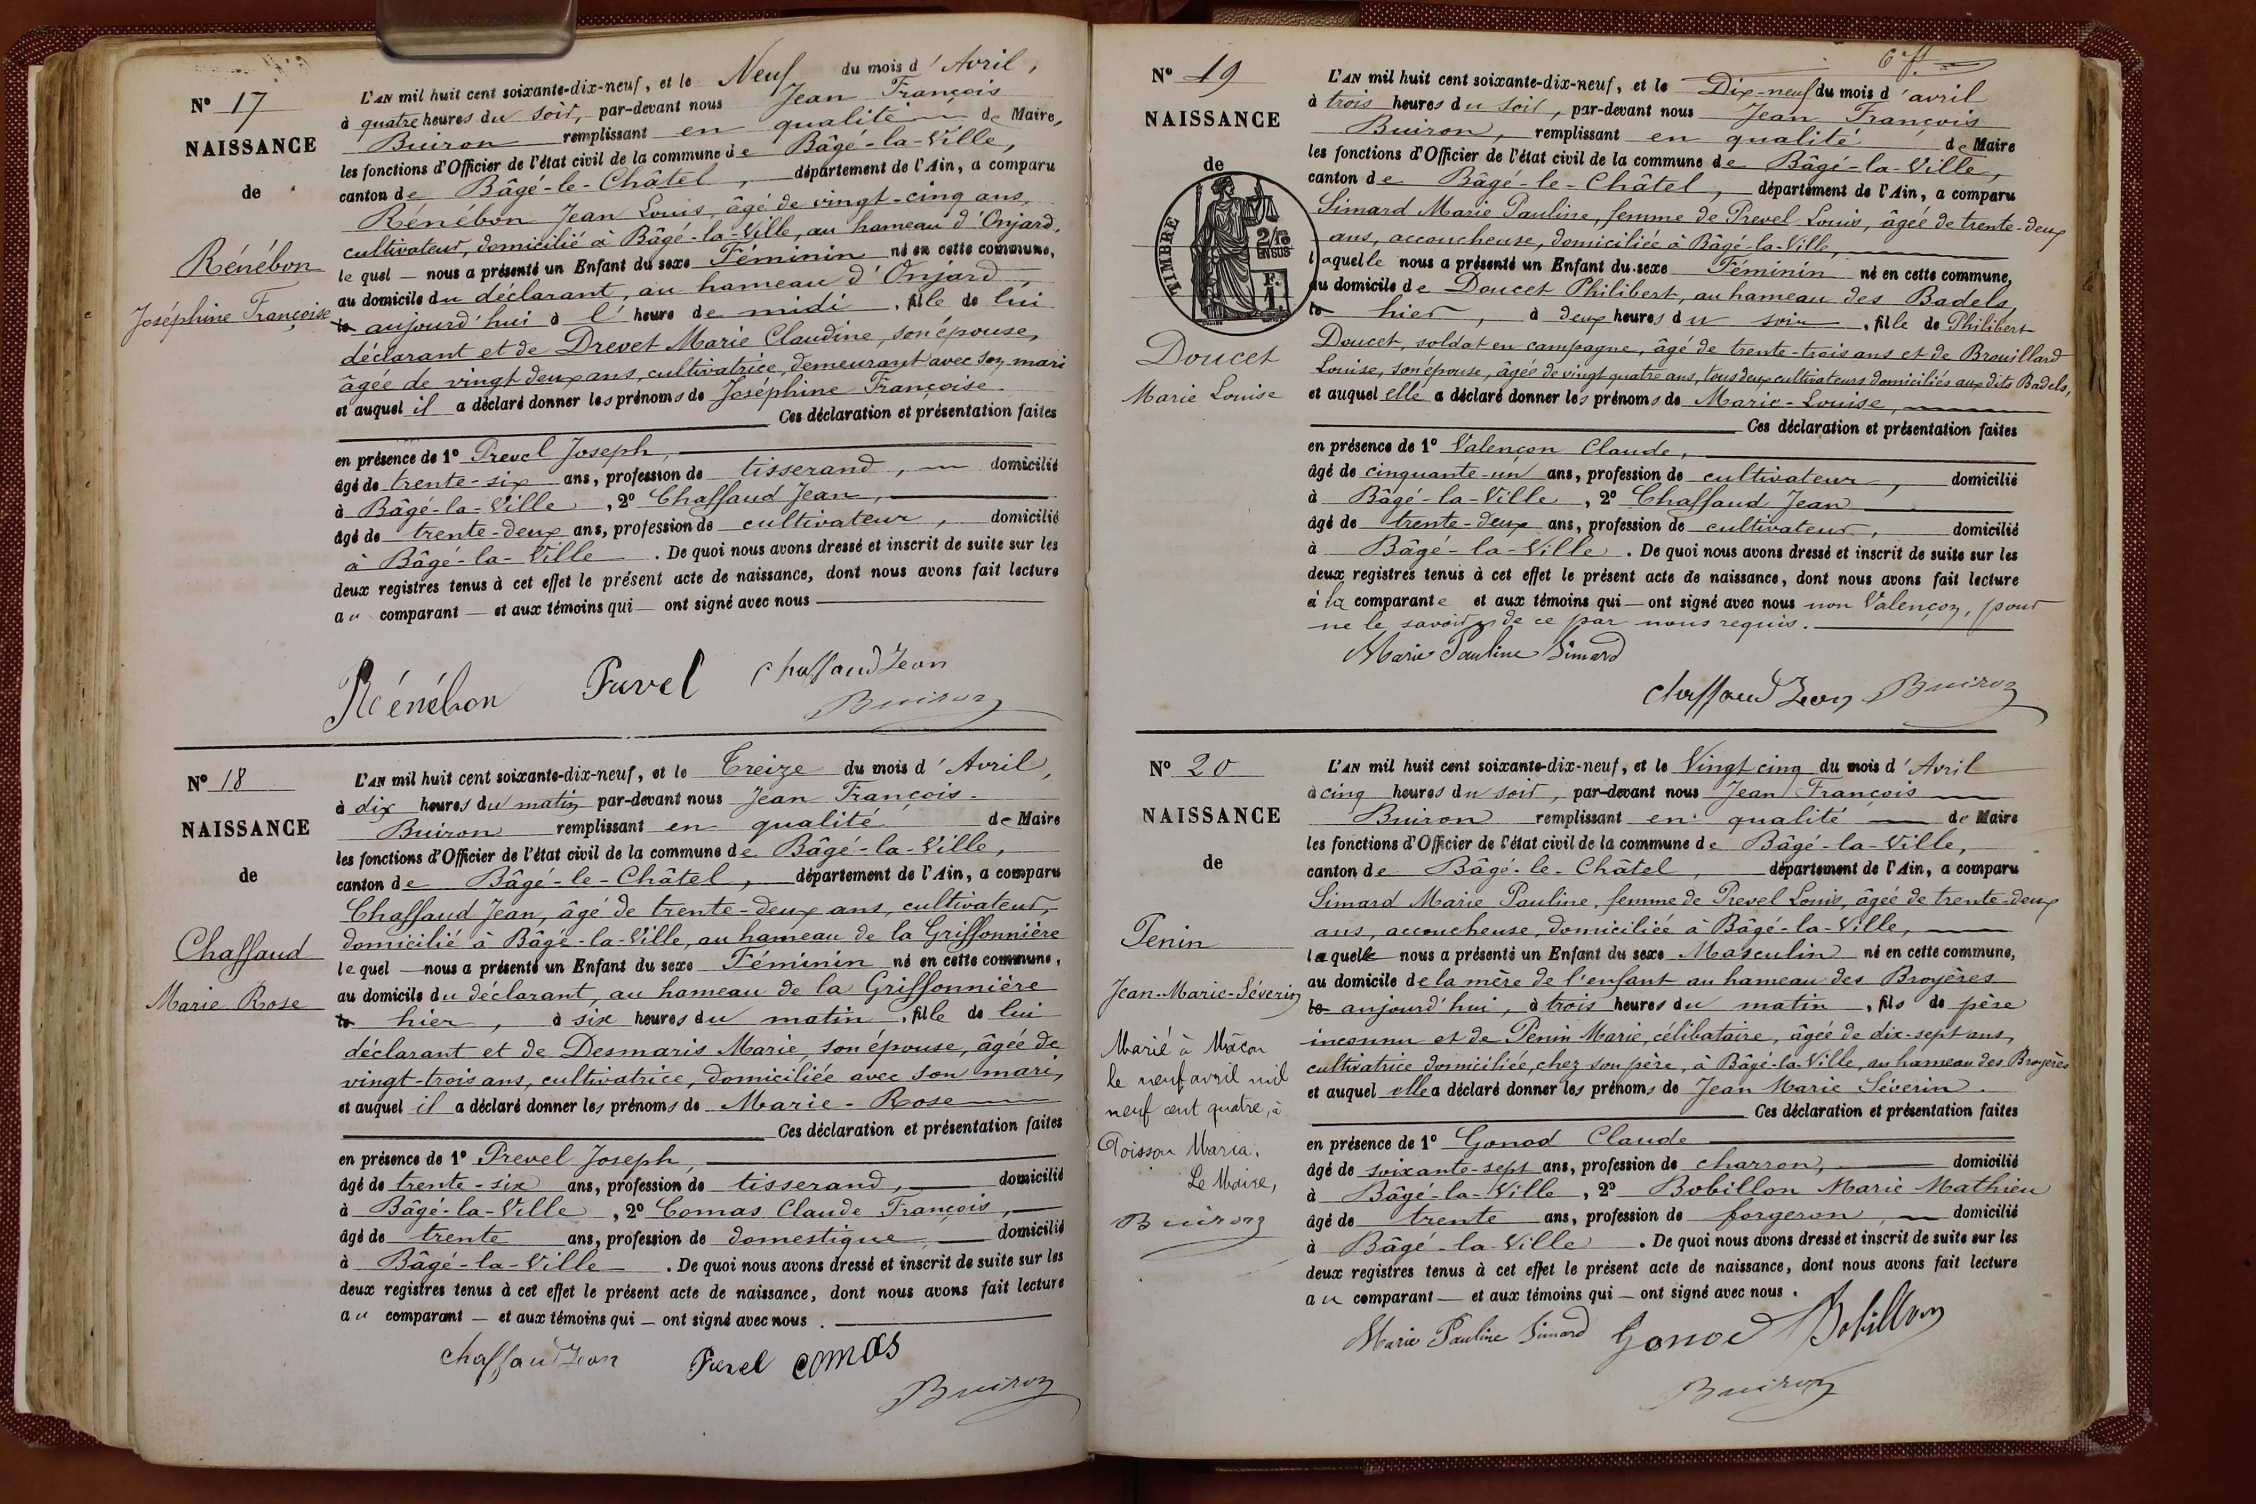 N° 17
NAISSANCE
de
Rénébon
Joséphine Françoise
L'AN mil huit cent soixante-dix-neuf, et le Neuf du mois d'Avril,
à quatre heures du soir, par-devant nous Jean François
Buiron remplissant en qualité de Maire,
les fonctions d'Officier de l'état civil de la commune de Bâgé-la-Ville,
canton de Bâgé-le-Châtel, département de l'Ain, a comparu
Rénébon Jean Louis, âgé de vingt-cinq ans,
cultivateur, domicilié à Bâgé-la-Ville, au hameau d'Onjard,
le quel nous a présenté un Enfant du sexe Féminin né en cette commune,
au domicile du déclarant, au hameau d'Onjard,
le aujourd'hui à l'heure de midi, fille de lui
déclarant et de Drevet Marie Claudine, son épouse,
âgée de vingt deux ans, cultivatrice, demeurant avec son mari
et auquel il a déclaré donner les prénoms de Joséphine Françoise.
Ces déclaration et présentation faites
en présence de 1° Prevel Joseph,
âgé de trente-six ans, profession de tisserand, domicilié
à Bâgé-la-Ville, 2° Chaffaud Jean,
âgé de trente-deux ans, profession de cultivateur, domicilié
à Bâgé-la-Ville. De quoi nous avons dressé et inscrit de suite sur les
deux registres tenus à cet effet le présent acte de naissance, dont nous avons fait lecture
au comparant et aux témoins qui ont signé avec nous
Rénébon Prevel Chaffaud Jean
Buiron
N° 18
NAISSANCE
de
Chaffaud
Marie Rose
L'AN mil huit cent soixante-dix-neuf, et le Treize du mois d'Avril,
à dix heures du matin par-devant nous Jean François
Buiron remplissant en qualité de Maire
les fonctions d'Officier de l'état civil de la commune de Bâgé-la-Ville,
canton de Bâgé-le-Châtel, département de l'Ain, a comparu
Chaffaud Jean, âgé de trente-deux ans, cultivateur,
domicilié à Bâgé-la-Ville, au hameau de la Griffonnière
le quel nous a présenté un Enfant du sexe Féminin né en cette commune,
au domicile du déclarant, au hameau de la Griffonnière
le hier, à six heures du matin, fille de lui
déclarant et de Desmaris Marie, son épouse, âgée de
vingt-trois ans, cultivatrice, domiciliée avec son mari,
et auquel il a déclaré donner les prénoms de Marie-Rose
Ces déclaration et présentation faites
en présence de 1° Prevel Joseph,
âgé de trente-six ans, profession de tisserand, domicilié
à Bâgé-la-Ville, 2° Comas Claude François,
âgé de trente ans, profession de domestique domicilié
à Bâgé-la-Ville. De quoi nous avons dressé et inscrit de suite sur les
deux registres tenus à cet effet le présent acte de naissance, dont nous avons fait lecture
au comparant et aux témoins qui ont signé avec nous.
Chaffaud Jean Prevel Comas
Buiron
N° 19
NAISSANCE
de
TIMBRE
2/10
EN SUS
Doucet
Marie Louise
L'AN mil huit cent soixante-dix-neuf, et le Dix-neuf du mois d'avril
à trois heures du soir, par-devant nous Jean François
Buiron, remplissant en qualité de Maire
les fonctions d'Officier de l'état civil de la commune de Bâgé-la-Ville,
canton de Bâgé-le-Châtel, département de l'Ain, a comparu
Simard Marie Pauline, femme de Prevel Louis, âgée de trente-deux
ans, accoucheuse, domiciliée à Bâgé-la-Ville,
laquelle nous a présenté un Enfant du sexe Féminin né en cette commune,
au domicile de Doucet Philibert, au hameau des Badels,
le hier, à deux heures du soir, fille de Philibert
Doucet, soldat en campagne, âgé de trente-trois ans et de Brouillard
Louise, son épouse, âgée de vingt quatre ans, tous deux cultivateurs domiciliés aux dits Badels,
et auquel elle a déclaré donner les prénoms de Marie-Louise,
Ces déclaration et présentation faites
en présence de 1° Valençon Claude,
âgé de cinquante-un ans, profession de cultivateur, domicilié
à Bâgé-la-Ville, 2° Chaffaud Jean
âgé de trente-deux ans, profession de cultivateur, domicilié
à Bâgé-la-Ville. De quoi nous avons dressé et inscrit de suite sur les
deux registres tenus à cet effet le présent acte de naissance, dont nous avons fait lecture
à la comparante et aux témoins qui ont signé avec nous non Valençon, pour
ne le savoir de ce par nous requis.
Marie Pauline Simard
Chaffaud Jean Buiron
N° 20
NAISSANCE
de
Penin
Jean-Marie-Séverin
Marié à Mâcon
le neuf avril mil
neuf cent quatre, à
Toisson Maria.
Le Maire,
Buiron
L'AN mil huit cent soixante-dix-neuf, et le Vingt cinq du mois d'Avril
à cinq heures du soir, par-devant nous Jean François
Buiron remplissant en qualité de Maire
les fonctions d'Officier de l'état civil de la commune de Bâgé-la-Ville,
canton de Bâgé-le-Châtel, département de l'Ain, a comparu
Simard Marie Pauline, femme de Prevel Louis, âgée de trente-deux
ans, accoucheuse, domiciliée à Bâgé-la-Ville,
laquelle nous a présenté un Enfant du sexe Masculin né en cette commune,
au domicile de la mère de l'enfant au hameau des Broyères
le aujourd'hui, à trois heures du matin, fils de père
inconnu et de Penin Marie, célibataire, âgée de dix-sept ans,
cultivatrice domiciliée, chez son père, à Bâgé-la-Ville, au hameau des Broyères
et auquel elle a déclaré donner les prénoms de Jean Marie Séverin.
Ces déclaration et présentation faites
en présence de 1° Gonod Claude
âgé de soixante-sept ans, profession de charron, domicilié
à Bâgé-la-Ville, 2° Bobillon Marie Mathieu
âgé de trente ans, profession de forgeron, domicilié
à Bâgé-la-Ville. De quoi nous avons dressé et inscrit de suite sur les
deux registres tenus à cet effet le présent acte de naissance, dont nous avons fait lecture
au comparant et aux témoins qui ont signé avec nous.
Marie Pauline Simard Gonod Bobillon
Buiron